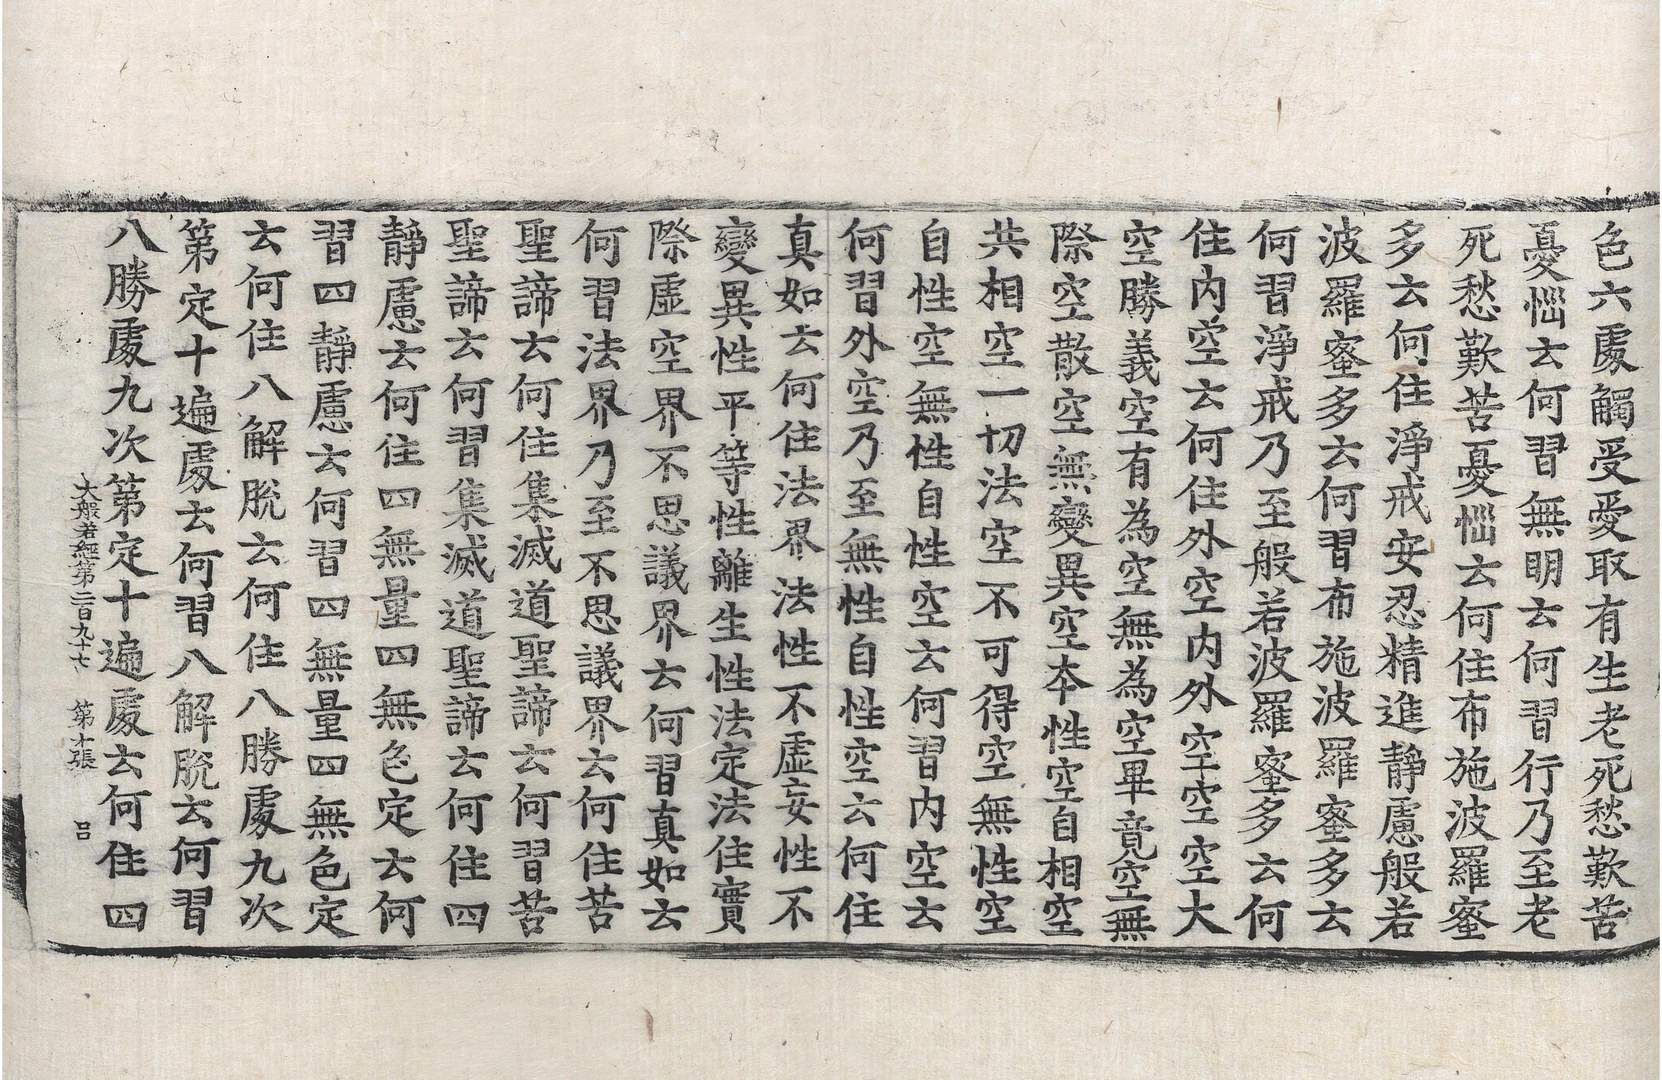 色六處觸受愛取有生老死愁歎苦
憂惱云何習無明云何習行乃至老
死愁歎苦憂惱云何住布施波羅蜜
多云何住淨戒安忍精進靜慮般若
波羅蜜多云何習布施波羅蜜多云
何習淨戒乃至般若波羅蜜多云何
住內空云何住外空內外空空空大
空勝義空有為空無為空畢竟空無
際空散空無變異空本性空自相空
共相空一切法空不可得空無性空
自性空無性自性空云何習內空云
何習外空乃至無性自性空云何住
真如云何住法界法性不虛妄性不
變異性平等性離生性法定法住實
際虛空界不思議界云何習真如云
何習法界乃至不思議界云何住苦
聖諦云何住集滅道聖諦云何習苦
聖諦云何習集滅道聖諦云何住四
靜慮云何住四無量四無色定云何
習四靜慮云何習四無量四無色定
云何住八解脫云何住八勝處九次
第定十遍處云何習八解脫云何習
八勝處九次第定十遍處云何住四
大般若經第二百九十七 第十張 呂